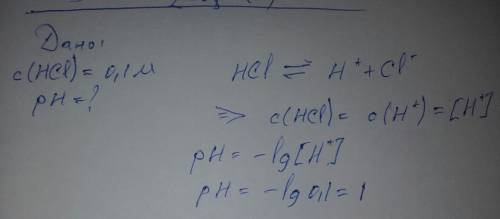 Дано:
c(HCl) = 0,1 М
pH = ?
HCl ⇌ H⁺ + Cl⁻
=> c(HCl) = c(H⁺) = [H⁺]
pH = -lg[H⁺]
pH = -lg 0,1 = 1